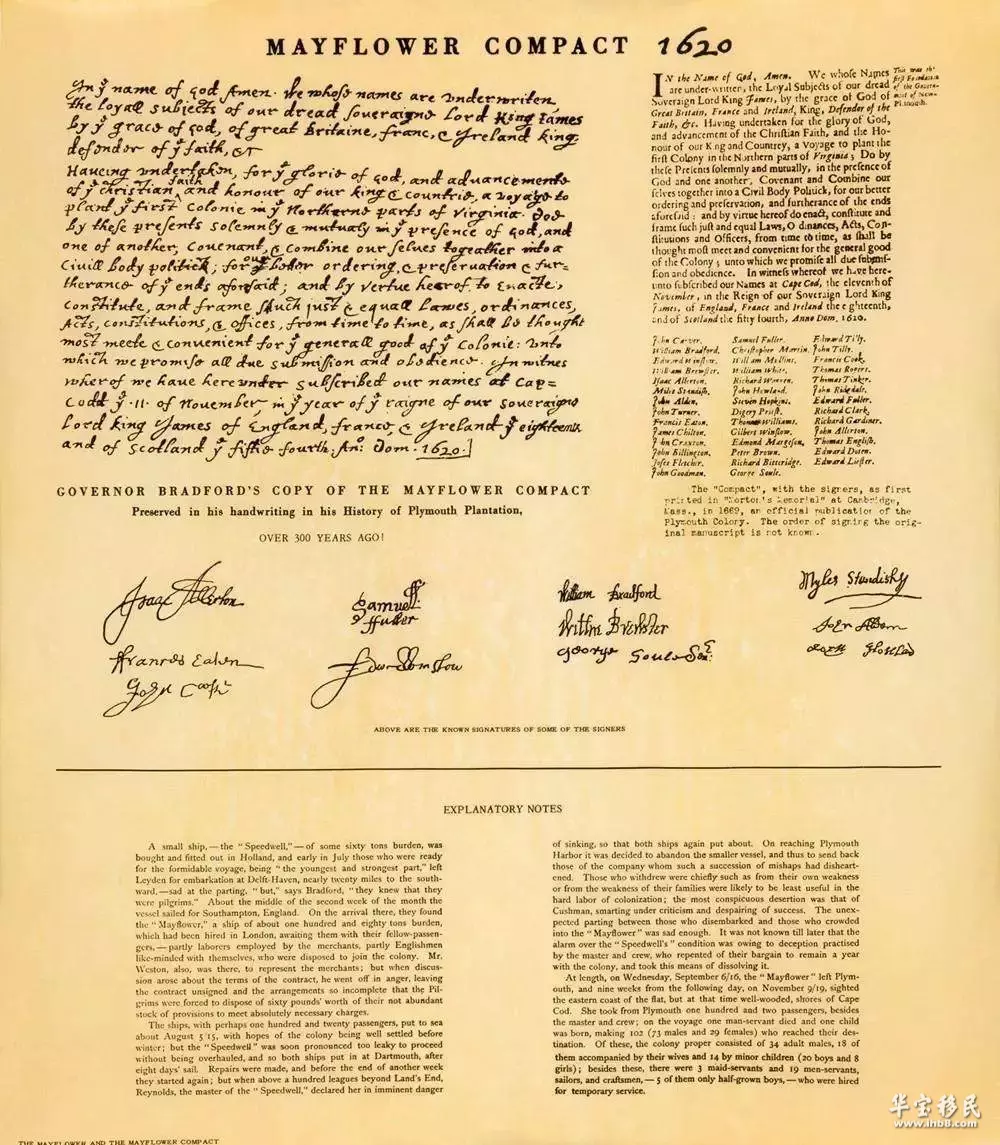 MAYFLOWER COMPACT 1620
In yͤ name of god Amen. We whose names are underwriten,
the loyall subjects of our dread soveraigne Lord King James
by yͤ grace of god, of great Britaine, franc, & Ireland king,
defender of yͤ faith, &c
Haveing undertaken, for yͤ glorie of god, and advancemente
of yͤ christian faith and honour of our king & countrie, a voyage to
plant yͤ first colonie in yͤ Northerne parts of Virginia. Doe
by these presents solemnly & mutualy in yͤ presence of god, and
one of another, covenant, & combine our selves togeather into a
Civill body politick; for our better ordering, & preservation & fur=
therance of yͤ ends aforesaid; and by vertue hearof to enacte,
constitute, and frame such just & equall lawes, ordinances,
Acts, constitutions, & offices, from time to time, as shall be thought
most meete & convenient for yͤ generall good of yͤ Colonie: unto
which we promise all due submission and obedience. In witnes
wherof we have hereunder subscribed our names at Cap=
Codd yͤ .11. of November, in yͤ year of yͤ raigne of our soveraigne
Lord king James of England, france & Ireland yͤ eighteenth
and of Scotland yͤ fiftie fourth. Anͦ: Dom. 1620.
GOVERNOR BRADFORD'S COPY OF THE MAYFLOWER COMPACT
Preserved in his handwriting in his History of Plymouth Plantation,
OVER 300 YEARS AGO!
IN the Name of God, Amen. We whose Names
are under-written, the Loyal Subjects of our dread
Soveraign Lord King James, by the grace of God of
Great Britain, France and Ireland, King, Defender of the
Faith, &c. Having undertaken for the glory of God,
and advancement of the Christian Faith, and the Ho-
nour of our King and Countrey, a Voyage to plant the
first Colony in the Northern parts of Virginia; Do by
these Presents solemnly and mutually, in the presence of
God and one another, Covenant and Combine our
selves together into a Civil Body Politick, for our better
ordering and preservation, and furtherance of the ends
aforesaid: and by virtue hereof do enact, constitute and
frame such just and equal Laws, Ordinances, Acts, Con-
stitutions and Officers, from time to time, as shall be
thought most meet and convenient for the general good
of the Colony; unto which we promise all due submis-
sion and obedience. In witness whereof we have here-
unto subscribed our Names at Cape Cod, the eleventh of
November, in the Reign of our Sovereign Lord King
James, of England, France and Ireland the eighteenth,
and of Scotland the fifty fourth, Anno Dom. 1620.
This was the
first Foundation
of the Govern-
ment of New-
Plimouth.
John Carver, Samuel Fuller, Edward Tilly,
William Bradford, Christopher Martin, John Tilly,
Edward Winslow, William Mullins, Francis Cook,
William Brewster, William White, Thomas Rogers,
Isaac Allerton, Richard Warren, Thomas Tinker,
Miles Standish, John Howland, John Ridgdale,
John Alden, Steven Hopkins, Edward Fuller,
John Turner, Digery Priest, Richard Clark,
Francis Eaton, Thomas Williams, Richard Gardiner,
James Chilton, Gilbert Winslow, John Allerton,
John Craxton, Edmond Margeson, Thomas English,
John Billington, Peter Brown, Edward Doten,
Joses Fletcher, Richard Bitteridge, Edward Liester.
John Goodman, George Soule,
The "Compact", with the signers, as first
printed in "Morton's Memorial" at Cambridge,
Mass., in 1669, an official publication of the
Plymouth Colony. The order of signing the orig-
inal manuscript is not known.
Isaac Allerton
Samuell
ffuller
William Bradford
Myles Standish
Willm Brewster
John Alden
Frances Eaten
Edw Winslow
George Soule Senr
John Cooke
ABOVE ARE THE KNOWN SIGNATURES OF SOME OF THE SIGNERS
EXPLANATORY NOTES
A small ship,—the "Speedwell,"—of some sixty tons burden, was
bought and fitted out in Holland, and early in July those who were ready
for the formidable voyage, being "the youngest and strongest part," left
Leyden for embarkation at Delft-Haven, nearly twenty miles to the south-
ward,—sad at the parting, "but," says Bradford, "they knew that they
were pilgrims." About the middle of the second week of the month the
vessel sailed for Southampton, England. On the arrival there, they found
the "Mayflower," a ship of about one hundred and eighty tons burden,
which had been hired in London, awaiting them with their fellow-passen-
gers,—partly laborers employed by the merchants, partly Englishmen
like-minded with themselves, who were disposed to join the colony. Mr.
Weston, also, was there, to represent the merchants; but when discus-
sion arose about the terms of the contract, he went off in anger, leaving
the contract unsigned and the arrangements so incomplete that the Pil-
grims were forced to dispose of sixty pounds' worth of their not abundant
stock of provisions to meet absolutely necessary charges.
The ships, with perhaps one hundred and twenty passengers, put to sea
about August 5/15, with hopes of the colony being well settled before
winter; but the "Speedwell" was soon pronounced too leaky to proceed
without being overhauled, and so both ships put in at Dartmouth, after
eight days' sail. Repairs were made, and before the end of another week
they started again; but when above a hundred leagues beyond Land's End,
Reynolds, the master of the "Speedwell," declared her in imminent danger
of sinking, so that both ships again put about. On reaching Plymouth
Harbor it was decided to abandon the smaller vessel, and thus to send back
those of the company whom such a succession of mishaps had disheart-
ened. Those who withdrew were chiefly such as from their own weakness
or from the weakness of their families were likely to be least useful in the
hard labor of colonization; the most conspicuous desertion was that of
Cushman, smarting under criticism and despairing of success. The unex-
pected parting between those who disembarked and those who crowded
into the "Mayflower" was sad enough. It was not known till later that the
alarm over the "Speedwell's" condition was owing to deception practised
by the master and crew, who repented of their bargain to remain a year
with the colony, and took this means of dissolving it.
At length, on Wednesday, September 6/16, the "Mayflower" left Plym-
outh, and nine weeks from the following day, on November 9/19, sighted
the eastern coast of the flat, but at that time well-wooded, shores of Cape
Cod. She took from Plymouth one hundred and two passengers, besides
the master and crew; on the voyage one man-servant died and one child
was born, making 102 (73 males and 29 females) who reached their des-
tination. Of these, the colony proper consisted of 34 adult males, 18 of
them accompanied by their wives and 14 by minor children (20 boys and 8
girls); besides these, there were 3 maid-servants and 19 men-servants,
sailors, and craftsmen,—5 of them only half-grown boys,—who were hired
for temporary service.
THE MAYFLOWER AND THE MAYFLOWER COMPACT
华宝移民
www.lnb8.com